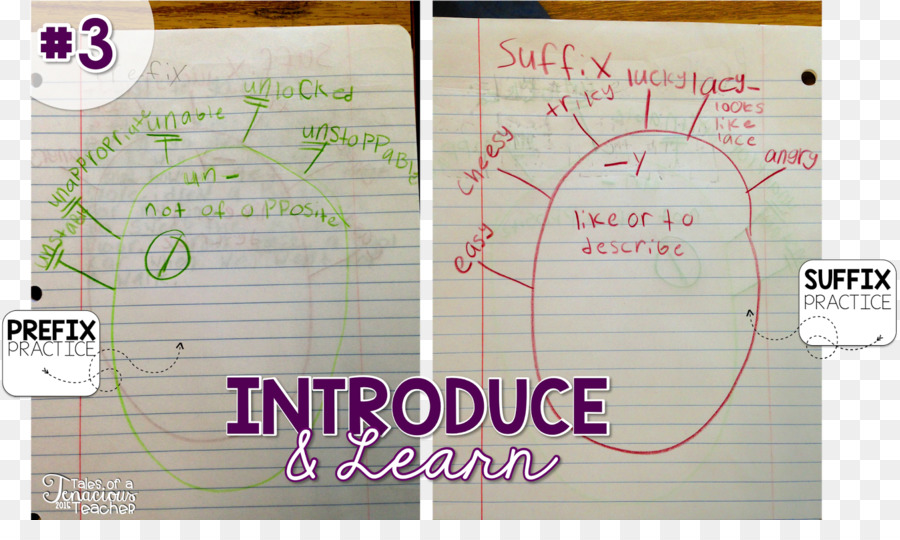 #3
Prefix
unlocked
unable
unstoppable
unappropriate
unstable
un-
not of opposite
PREFIX
PRACTICE
Suffix
lucky
lacy-
looks
like
lace
triky
cheesy
angry
easy
-y
like or to
describe
SUFFIX
PRACTICE
INTRODUCE
& Learn
Tales of a
Tenacious
2015
Teacher